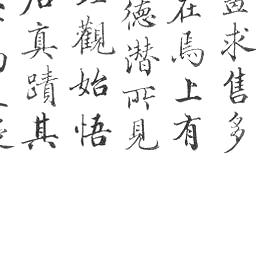 求售多
在焉上有
德潛所見
觀始悟
真蹟其